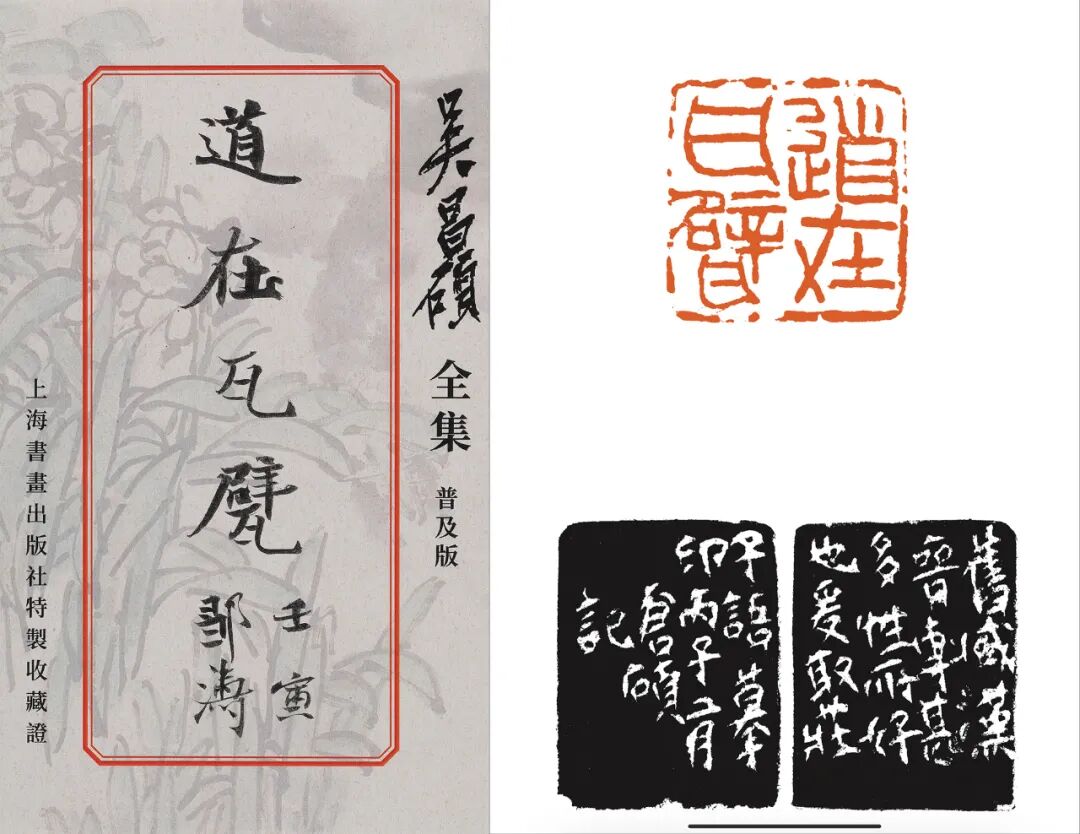 吳昌碩
全集
普及版
道在瓦甓
壬寅
邹濤
上海書畫出版社特製收藏證
道在
瓦甓
舊臧漢
晉專甚
多性所好
也爰取莊
子語摹
印丙子二月
倉碩
記